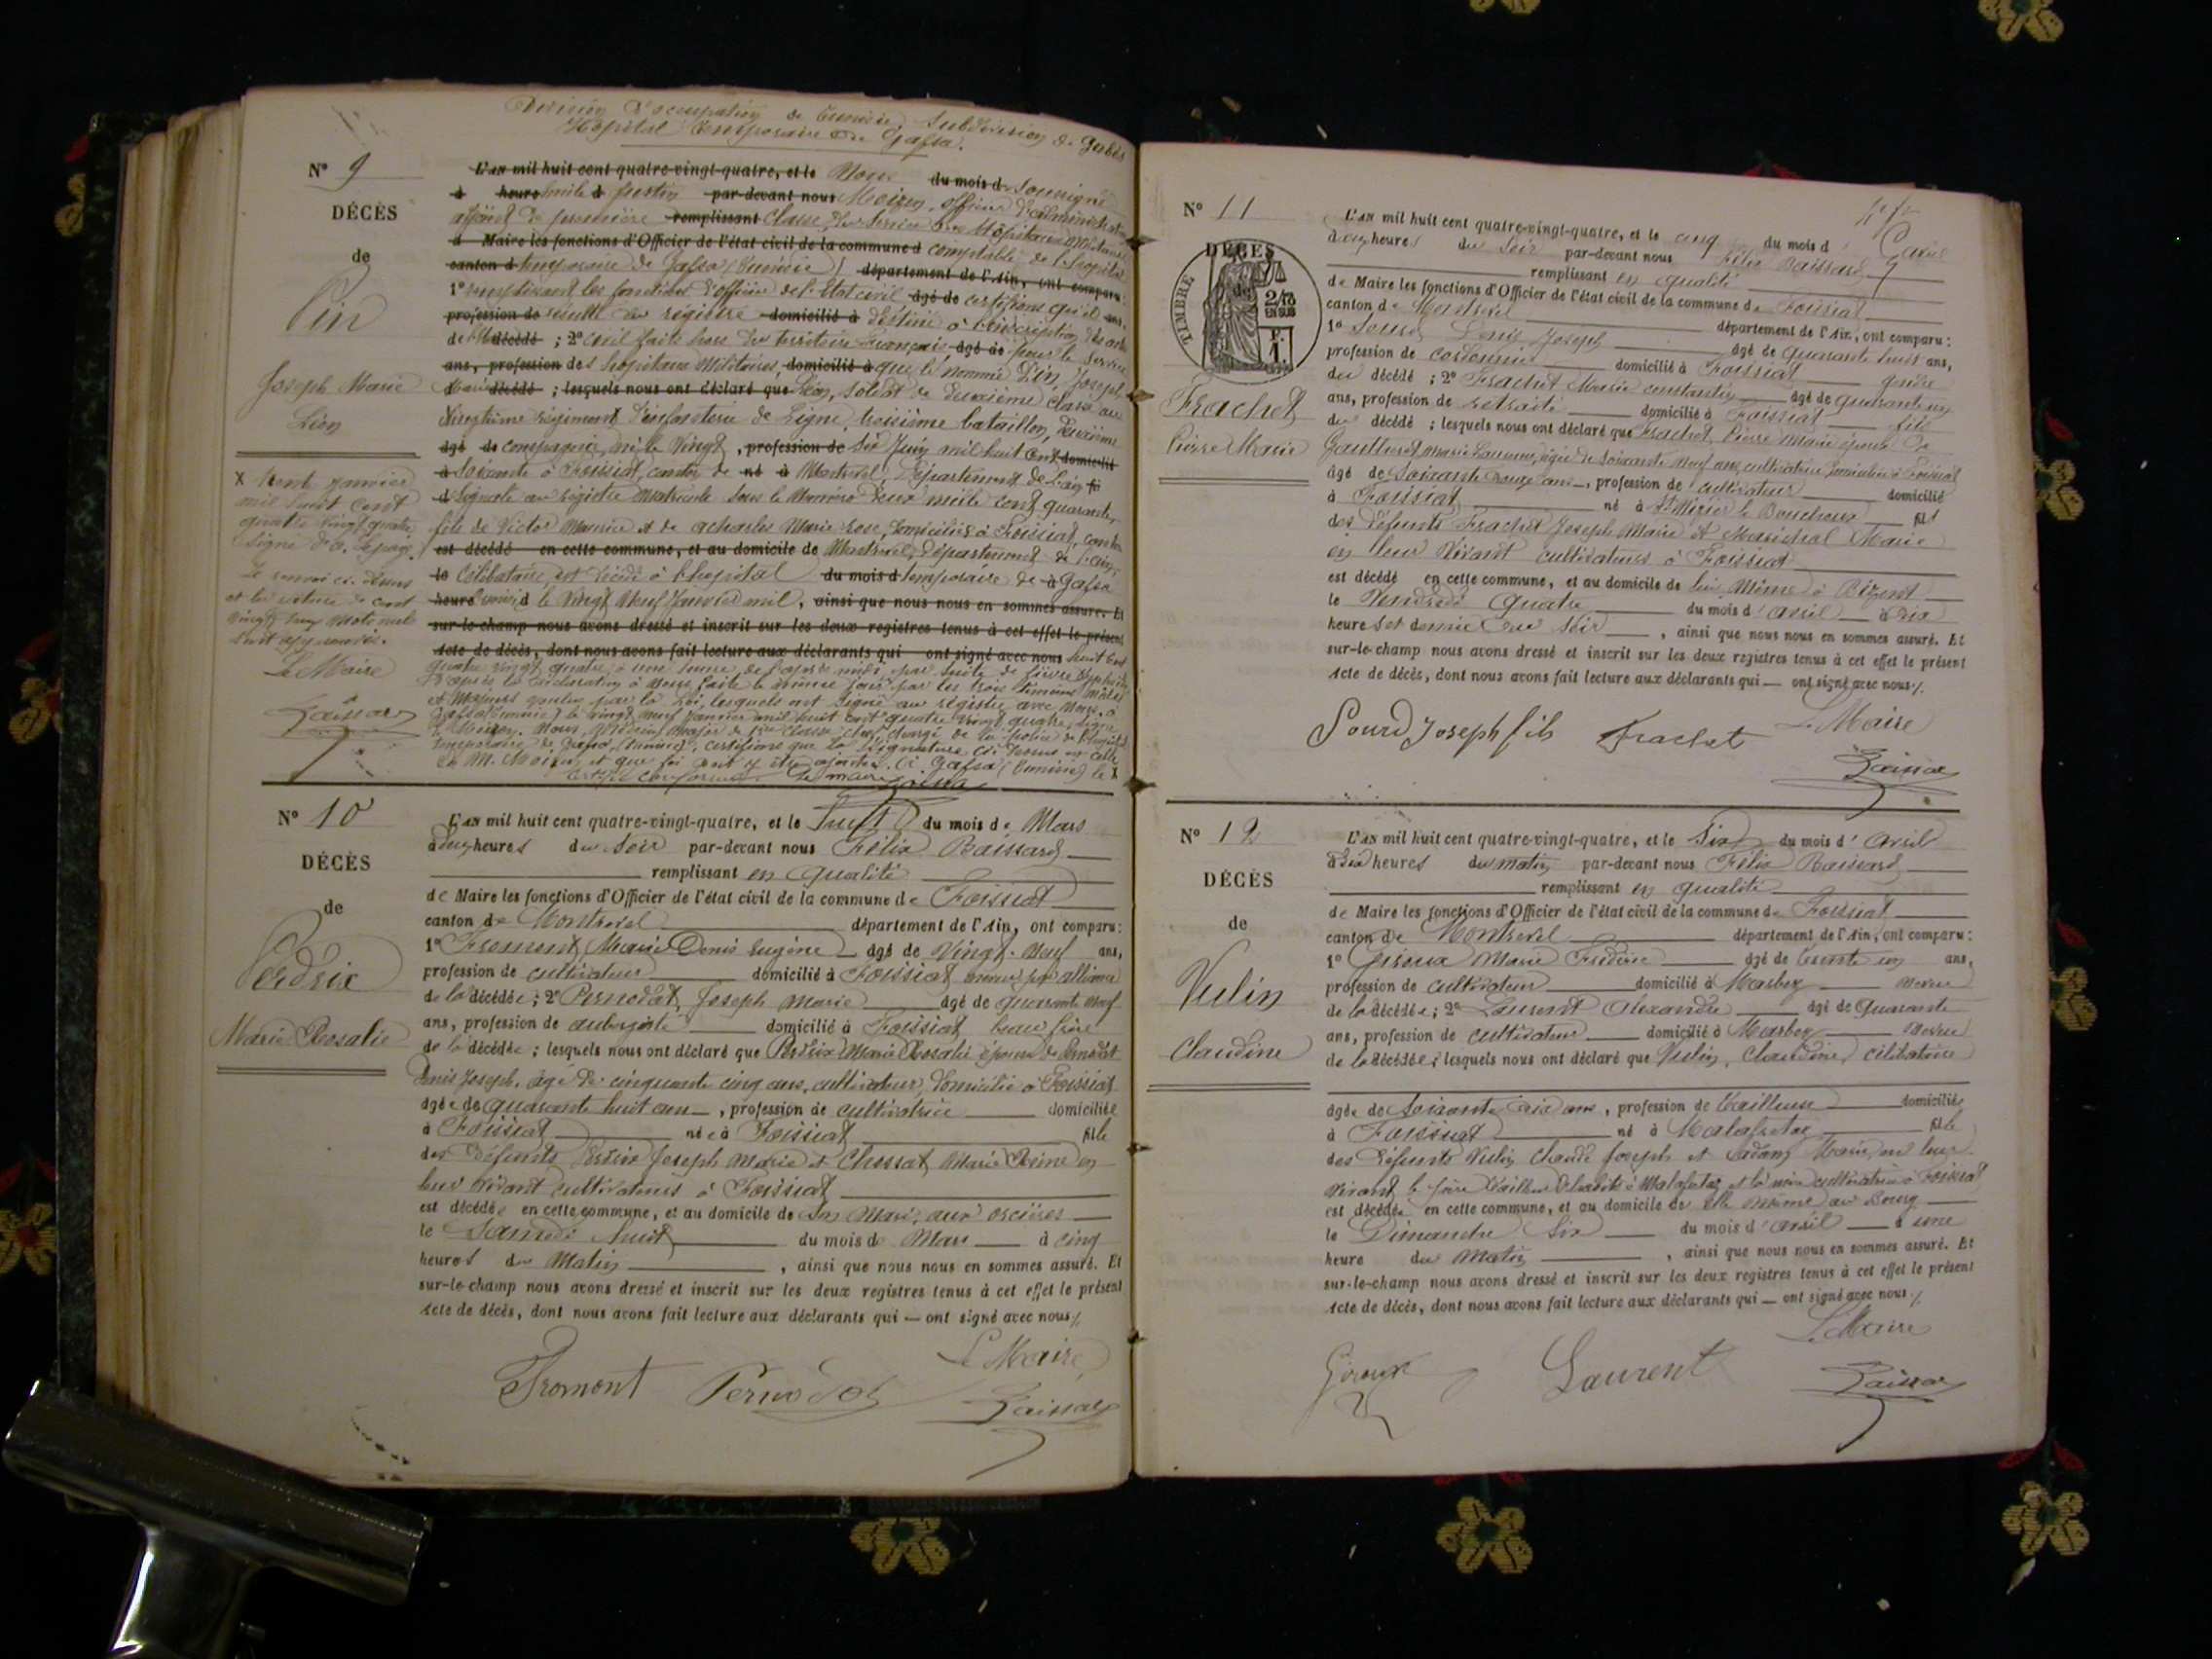 Division d'occupation de Tunisie, Subdivision de Gabès
Hôpital temporaire de Gafsa.
N° 9
DÉCÈS
de
Pin
Joseph Marie
Léon
L'an mil huit cent quatre-vingt-quatre, et le Nous du mois d soussigné
à heure par-devant nous Moizen, officier d'administration
adjoint de première remplissant classe, du service des Hôpitaux Militaires
d Maire les fonctions d'Officier de l'état civil de la commune d comptable de l'hôpital
canton d temporaire de Gafsa (Tunisie) département de l'Ain, ont comparu:
1° remplissant les fonctions d'officier de l'état civil âgé de certifions qu'il ans,
profession de résulte du registre domicilié à destiné à l'inscription des actes
de l'Etat décédé ; 2° civil faits hors du territoire français âgé de pour le service
ans, profession des hopitaux militaires, domicilié à que le nommé Pin, Joseph,
Marie décédé ; lesquels nous ont déclaré que Léon, soldat de deuxième classe au
vingtième régiment d'infanterie de ligne, troisième bataillon, deuxième
âgé de compagnie, né le vingt , profession de six Juin mil huit cent domicilié
à soixante à Foissiat, canton de né à Montrevel, département de l'ain fi
d signalé au registre matricule sous le numéro deux mille cent quarante,
fils de Victor Maurice et de Marie Rose, domiciliés à Foissiat, canton
est décédé en cette commune, et au domicile de Montrevel, département de l'ain,
le Célibataire, est décédé à l'hôpital du mois d temporaire de à Gafsa
heure le vingt neuf Janvier mil, ainsi que nous nous en sommes assuré. Et
sur-le-champ nous avons dressé et inscrit sur les deux registres tenus à cet effet le présent
acte de décès, dont nous avons fait lecture aux déclarants qui ont signé avec nous huit cent
quatre vingt quatre à une heure de l'après midi, par suite de fièvre typhoïde
D'après la déclaration à nous faite le même jour par les trois témoins mâles
et majeurs voulus par la loi, lesquels ont signé au registre avec nous. à
Gafsa (Tunisie) le vingt neuf Janvier mil huit cent quatre vingt quatre, signé
Moizen. Nous, Médecin Major de 1ère classe, chef chargé de la police de l'hôpital
temporaire de Gafsa, (Tunisie), certifions que la signature ci-dessus est celle
de M. Moizen et que foi doit y être ajoutée. à Gafsa (Tunisie) le X
Le maire
X trente janvier
mil huit cent
quatre vingt quatre
signé
Le renvoi ci-dessus
et la rature de cent
vingt mots nuls
sont approuvés.
Le Maire
Baissard
N° 10
DÉCÈS
de
Perdrix
Marie Rosalie
L'an mil huit cent quatre-vingt-quatre, et le huit du mois de Mars
à heures du soir par-devant nous Félix Baissard
remplissant en qualité
de Maire les fonctions d'Officier de l'état civil de la commune de Foissiat
canton de Montrevel département de l'Ain, ont comparu:
1° Fromont, Marie Denis Eugène âgé de vingt-neuf ans,
profession de cultivateur domicilié à Foissiat neveu par alliance
de la décédée ; 2° Pernodat, Joseph Marie âgé de quarante neuf
ans, profession de aubergiste domicilié à Foissiat beau frère
de la décédée ; lesquels nous ont déclaré que Perdrix Marie Rosalie épouse de Pernodat
Denis Joseph, âgé de cinquante cinq ans, cultivateur, domicilié à Foissiat
âgée de quarante huit ans , profession de cultivatrice domiciliée
à Foissiat née à Foissiat fille
des défunts Perdrix Joseph Marie et Chossat Marie Reine en
leur vivant cultivateurs à Foissiat
est décédée en cette commune, et au domicile de son mari, aux
le Samedi huit du mois de Mars à cinq
heures du Matin , ainsi que nous nous en sommes assuré. Et
sur-le-champ nous avons dressé et inscrit sur les deux registres tenus à cet effet le présent
acte de décès, dont nous avons fait lecture aux déclarants qui — ont signé avec nous ./.
Le Maire
Fromont Pernodat Baissard
N° 11
DÉCÈS
de
TIMBRE
2/10
EN SUS
F.
1.
Frachet
Pierre Marie
L'an mil huit cent quatre-vingt-quatre, et le cinq du mois d'avril
à heures du soir par-devant nous Félix Baissard
remplissant en qualité
de Maire les fonctions d'Officier de l'état civil de la commune de Foissiat
canton de Montrevel département de l'Ain, ont comparu:
1° Sourd, Joseph âgé de quarante huit ans,
profession de cordonnier domicilié à Foissiat gendre
du décédé ; 2° Frachet Marie Constantin âgé de quarante un
ans, profession de retraité domicilié à Foissiat fils
du décédé ; lesquels nous ont déclaré que Frachet, Pierre Marie époux de
Marie Laurence, âgée de soixante neuf ans, cultivatrice, domiciliée à Foissiat
âgé de soixante ans , profession de cultivateur domicilié
à Foissiat né à fils
des défunts Frachet Joseph Marie et Maréchal Marie
en leur vivant cultivateurs à Foissiat
est décédé en cette commune, et au domicile de lui même à
le Vendredi quatre du mois d'avril à six
heures et demie du soir , ainsi que nous nous en sommes assuré. Et
sur-le-champ nous avons dressé et inscrit sur les deux registres tenus à cet effet le présent
acte de décès, dont nous avons fait lecture aux déclarants qui — ont signé avec nous ./.
Le Maire
Sourd Joseph fils Frachet
Baissard
N° 12
DÉCÈS
de
Vulin
Claudine
L'an mil huit cent quatre-vingt-quatre, et le six du mois d'avril
à dix heures du matin par-devant nous Félix Baissard
remplissant en qualité
de Maire les fonctions d'Officier de l'état civil de la commune de Foissiat
canton de Montrevel département de l'Ain, ont comparu:
1° Giroux Marie Frédéric âgé de trente un ans,
profession de cultivateur domicilié à Marboz neveu
de la décédée ; 2° Laurent Alexandre âgé de quarante
ans, profession de cultivateur domicilié à Marboz neveu
de la décédée ; lesquels nous ont déclaré que Vulin, Claudine, célibataire
âgée de soixante dix ans , profession de tailleuse domiciliée
à Foissiat né à Malafretaz fille
des défunts Vulin Claude Joseph et Marie, en leur
vivant le père tailleur d'habits à Malafretaz et la mère cultivatrice à Foissiat
est décédée en cette commune, et au domicile de elle même au Bourg
le Dimanche six du mois d'avril à une
heure du matin , ainsi que nous nous en sommes assuré. Et
sur-le-champ nous avons dressé et inscrit sur les deux registres tenus à cet effet le présent
acte de décès, dont nous avons fait lecture aux déclarants qui — ont signé avec nous ./.
Le Maire
Giroux Laurent Baissard